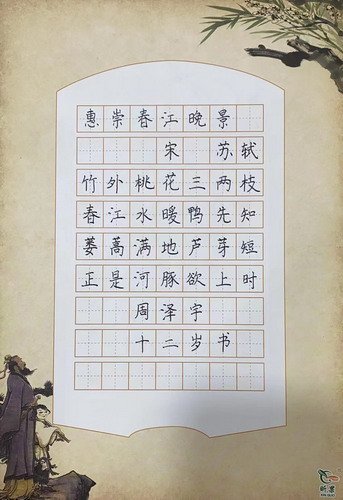 惠崇春江晚景
宋 苏轼
竹外桃花三两枝
春江水暖鸭先知
蒌蒿满地芦芽短
正是河豚欲上时
周泽宇
十二岁书